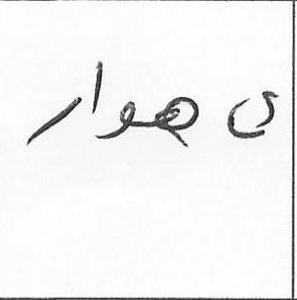 ی هوار